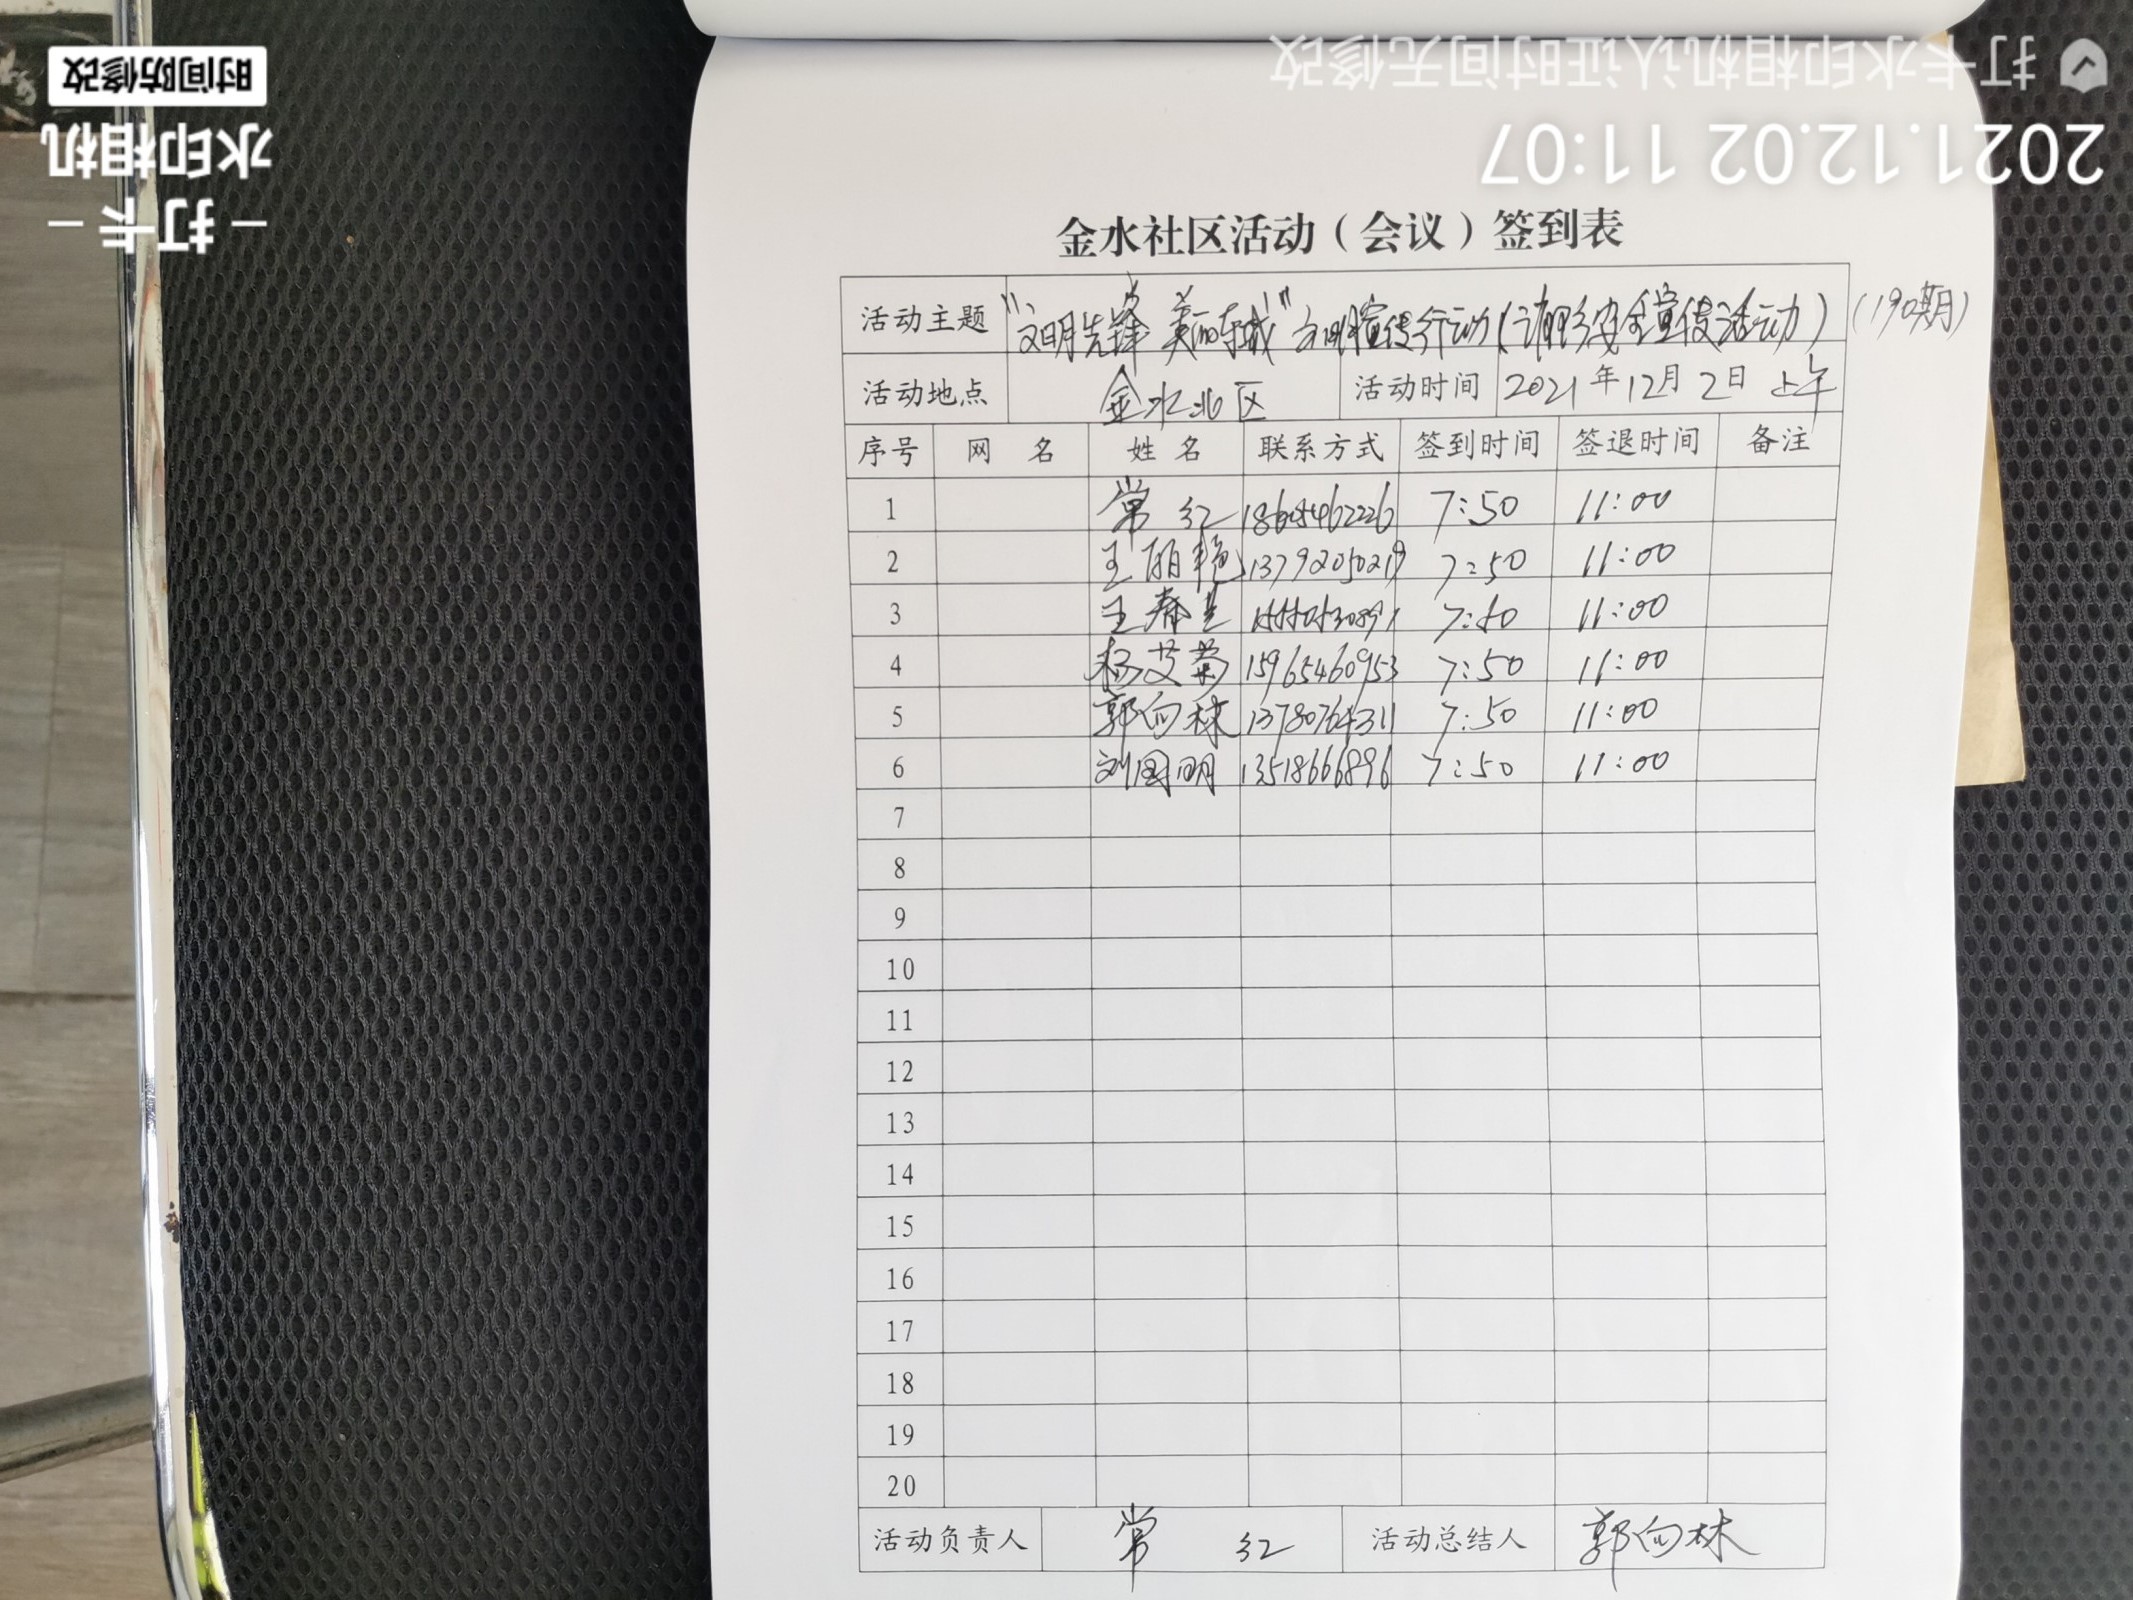 打卡水印相机认证时间无修改
2021.12.02 11:07
时间防修改
水印相机
打卡
金水社区活动（会议）签到表
活动主题 “文明先锋 美丽东城”文明宣传行动（消防安全宣传活动）（190期）
活动地点 金水北区 活动时间 2021年12月2日 上午
序号 网 名 姓 名 联系方式 签到时间 签退时间 备注
1 常红 7:50 11:00
2 王丽艳 13792050219 7:50 11:00
3 7:50 11:00
4 杨艾菊 15965460953 7:50 11:00
5 郭向林 13780764311 7:50 11:00
6 刘国明 13518666896 7:50 11:00
7
8
9
10
11
12
13
14
15
16
17
18
19
20
活动负责人 常红 活动总结人 郭向林